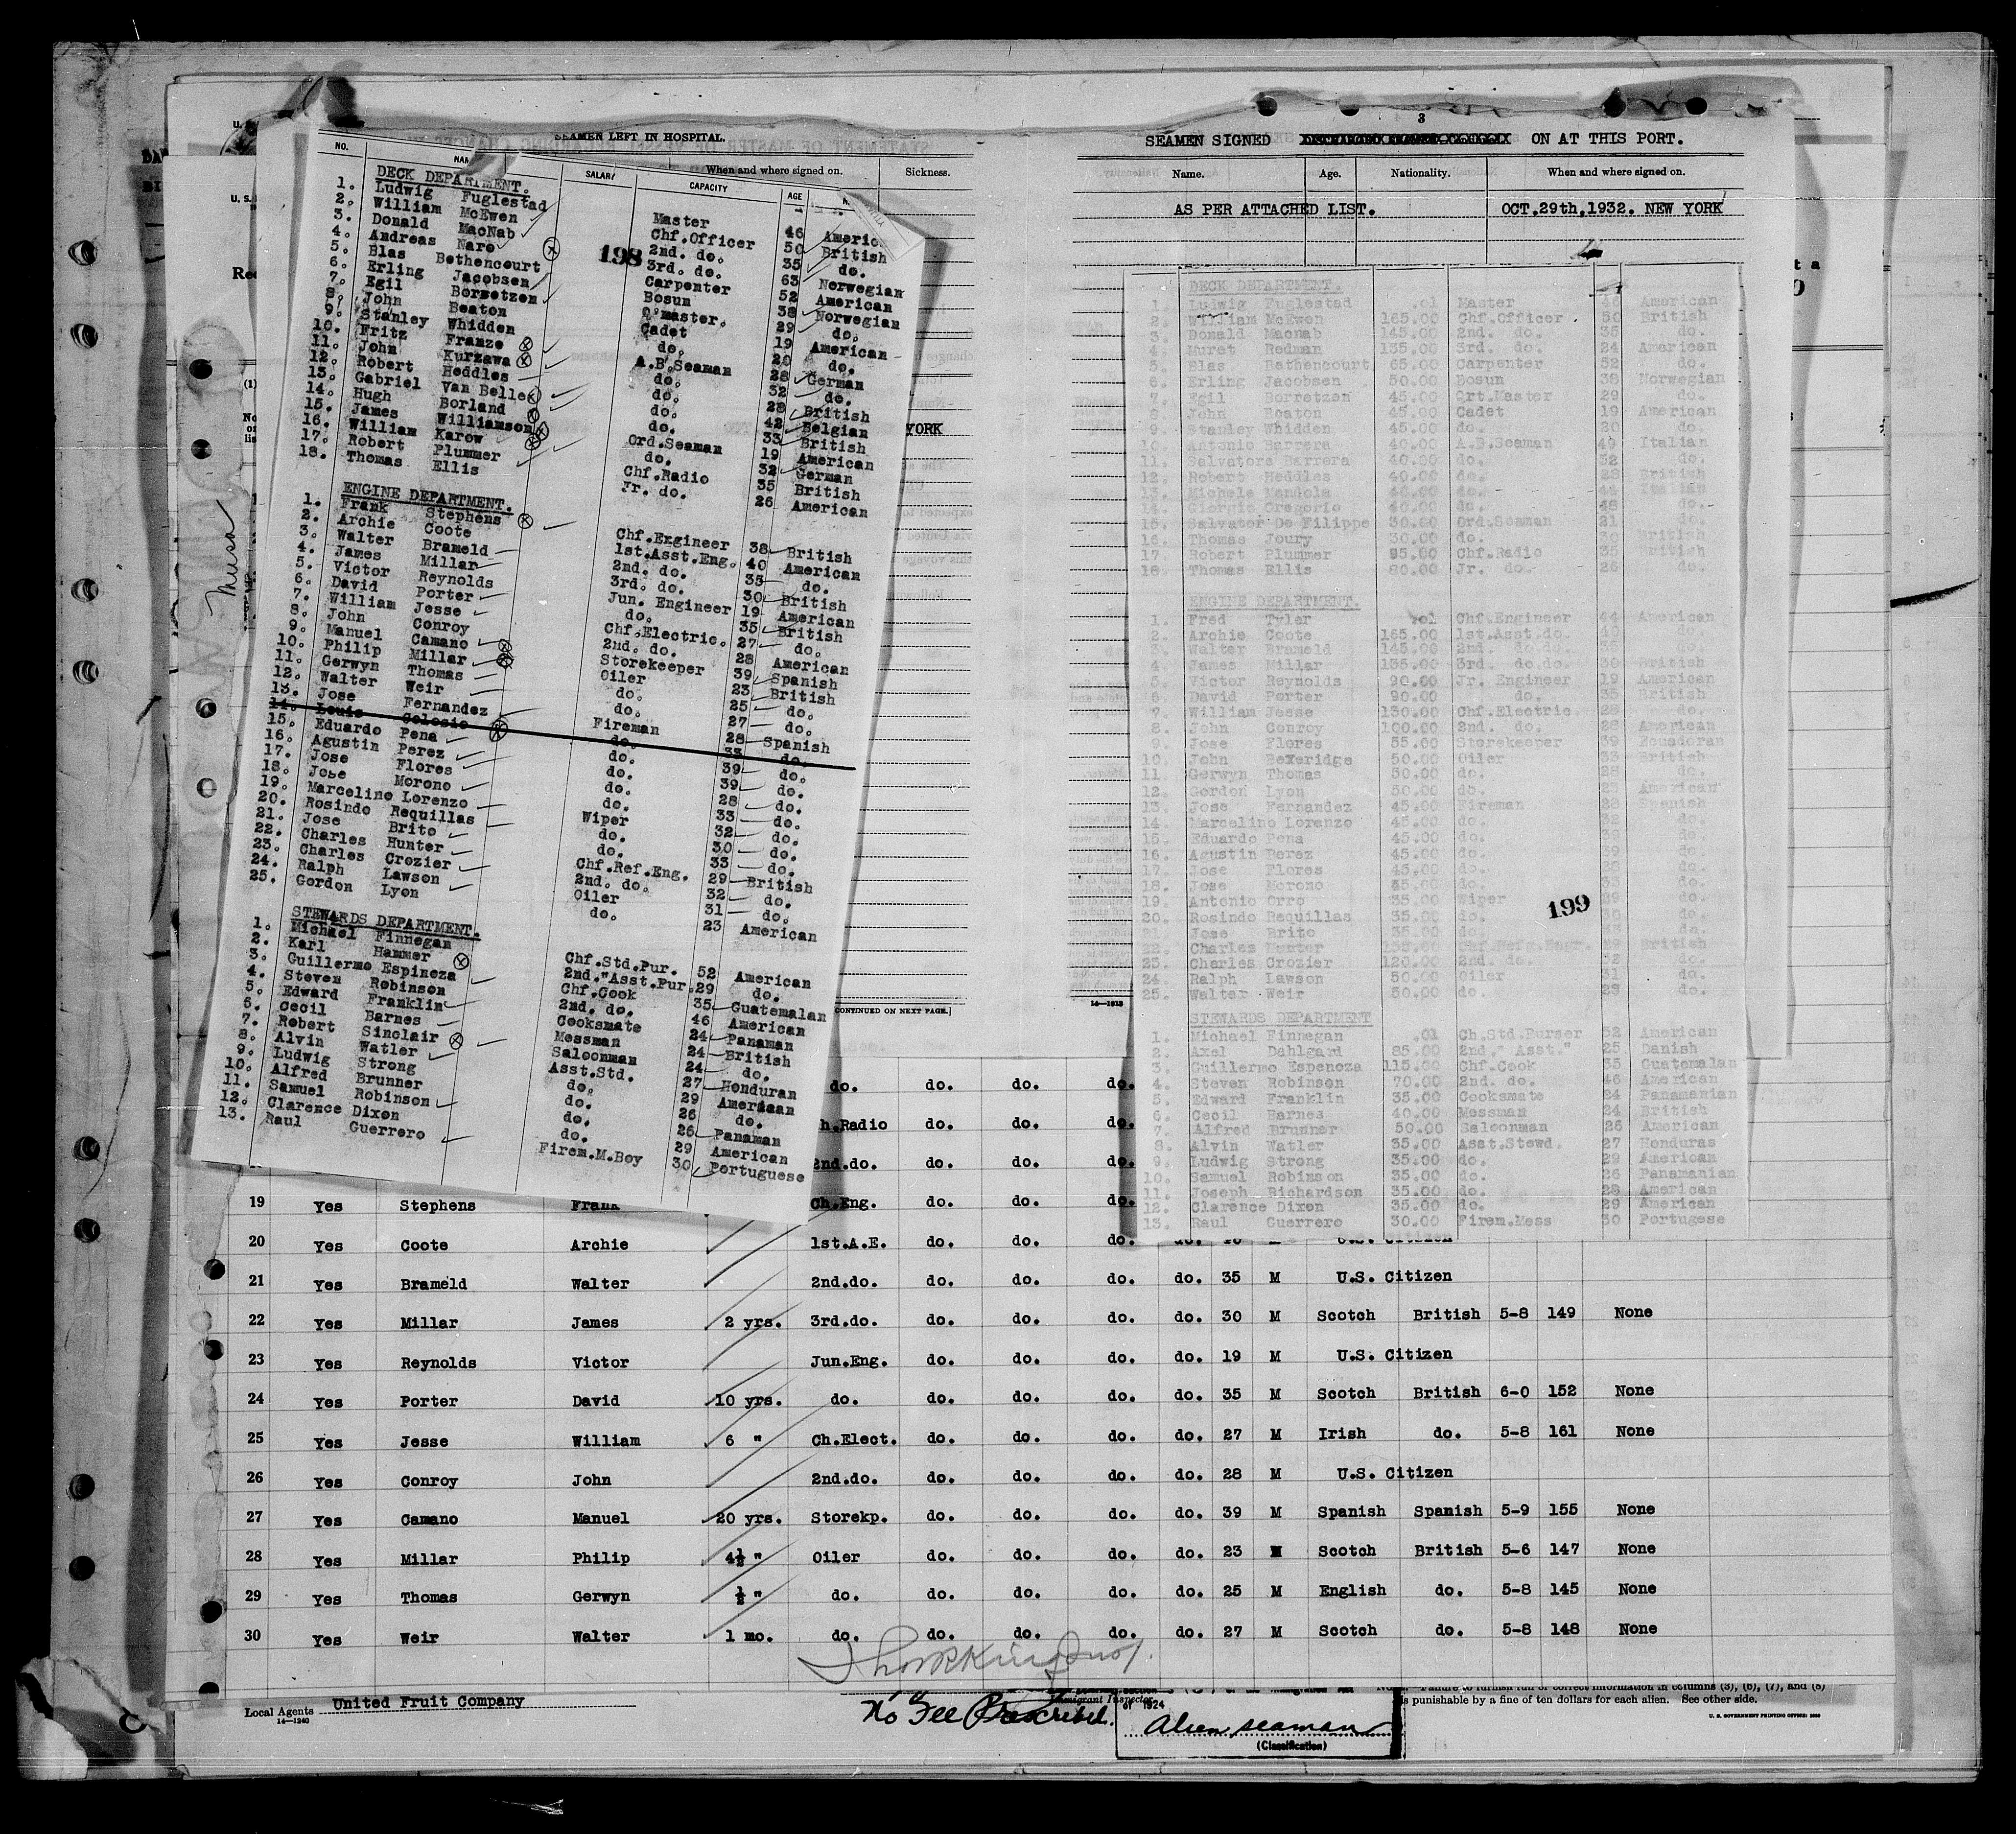 SEAMEN LEFT IN HOSPITAL.
When and where signed on. Sickness.
NO. SALARY CAPACITY AGE
DECK DEPARTMENT.
1. Ludwig Fuglestad Master 46
2. William McEwen Chf.Officer 50 British
3. Donald MacNab 2nd. do. 35 do.
4. Andreas Naro 3rd. do. 63 Norwegian
5. Blas Bethencourt Carpenter 52 American
6. Erling Jacobsen Bosun 38 Norwegian
7. Egil Borretzen Q'master. 29 do.
8. John Beaton Cadet 19 American
9. Stanley Whidden do. 20 do.
10. Fritz Franze A.B.Seaman 28 German
11. John Kurzawa do. 32 do.
12. Robert Heddles do. 28 British
13. Gabriel Van Belle do. 42 Belgian
14. Hugh Borland do. 33 British
15. James Williamson Ord.Seaman 19 American
16. William Karow do. 32 German
17. Robert Plummer Chf.Radio 35 British
18. Thomas Ellis Jr. do. 26 American
198
ENGINE DEPARTMENT.
1. Frank Stephens Chf.Engineer 38 British
2. Archie Coote 1st.Asst.Eng. 40 American
3. Walter Brameld 2nd. do. 35 do.
4. James Millar 3rd. do. 30 British
5. Victor Reynolds Jun. Engineer 19 American
6. David Porter do. 35 British
7. William Jesse Chf.Electric. 27 do.
8. John Conroy 2nd. do. 28 American
9. Manuel Camano Storekeeper 39 Spanish
10. Philip Millar Oiler 23 British
11. Gerwyn Thomas do. 25 do.
12. Walter Weir do. 27 do.
13. Jose Fernandez Fireman 28 Spanish
14. Louis do. 33 do.
15. Eduardo Pena do. 39 do.
16. Agustin Perez do. 39 do.
17. Jose Flores do. 28 do.
18. Jose Morono do. 33 do.
19. Marcelino Lorenzo Wiper 32 do.
20. Rosindo Requillas do. 30 do.
21. Jose Brito do. 33 do.
22. Charles Hunter Chf.Ref.Eng. 29 British
23. Charles Crozier 2nd. do. 32 do.
24. Ralph Lawson Oiler 31 do.
25. Gordon Lyon do. 23 American
STEWARDS DEPARTMENT.
1. Michael Finnegan Chf.Std.Pur. 52 American
2. Karl Hammer 2nd."Asst.Pur. 29 do.
3. Guillermo Espineza Chf.Cook 35 Guatemalan
4. Steven Robinson 2nd. do. 46 American
5. Edward Franklin Cooksmate 24 Panaman
6. Cecil Barnes Messman 24 British
7. Robert Sinclair Saloonman 24 do.
8. Alvin Watler Asst.Std. 27 Honduran
9. Ludwig Strong do. 29 American
10. Alfred Brunner do. 26 do.
11. Samuel Robinson do. 26 Panaman
12. Clarence Dixon do. 29 American
13. Raul Guerrero Firem.M.Boy 30 Portuguese
Musa
YORK
CONTINUED ON NEXT PAGE.]
3
SEAMEN SIGNED ON AT THIS PORT.
Name. Age. Nationality. When and where signed on.
AS PER ATTACHED LIST. OCT.29th,1932. NEW YORK
DECK DEPARTMENT.
1. Ludwig Fuglestad .01 Master 46 American
2. William McEwen 165.00 Chf.Officer 50 British
3. Donald Macnab 145.00 2nd. do. 35 do.
4. Muret Redman 135.00 3rd. do. 24 American
5. Blas Bethencourt 65.00 Carpenter 52 do.
6. Erling Jacobsen 50.00 Bosun 38 Norwegian
7. Egil Borretzen 45.00 Qrt.Master 29 do.
8. John Beaton 45.00 Cadet 19 American
9. Stanley Whidden 45.00 do. 20 do.
10. Antonio Barrera 40.00 A.B.Seaman 49 Italian
11. Salvatore Barrera 40.00 do. 32 do.
12. Robert Heddles 40.00 do. 28 British
13. Michele 40.00 do. Italian
14. Giorgio Gregorio 40.00 do. 48 do.
15. Salvator De Filippe 30.00 Ord.Seaman 21 do.
16. Thomas Joury 30.00 do. British
17. Robert Plummer 95.00 Chf.Radio 35 British
18. Thomas Ellis 80.00 Jr. do. 26 do.
ENGINE DEPARTMENT.
1. Fred Tyler .01 Chf.Engineer 44 American
2. Archie Coote 165.00 1st.Asst.do. 40 do.
3. Walter Brameld 145.00 2nd. do do. 35 do.
4. James Millar 135.00 3rd. do do. 30 British
5. Victor Reynolds 90.00 Jr. Engineer 19 American
6. David Porter 90.00 do. 35 British
7. William Jesse 130.00 Chf.Electric. 28 do.
8. John Conroy 100.00 2nd. do. 28 American
9. Jose Flores 55.00 Storekeeper 39 Ecuadoran
10. John Bexeridge 50.00 Oiler 33 British
11. Gerwyn Thomas 50.00 do. 28 do.
12. Gordon Lyon 50.00 do. 23 American
13. Jose Fernandez 45.00 Fireman 28 Spanish
14. Marcelino Lorenzo 45.00 do. 32 do.
15. Eduardo Pena 45.00 do. 39 do.
16. Agustin Perez 45.00 do. 39 do.
17. Jose Flores 45.00 do. 28 do.
18. Jose Morono 45.00 do. 33 do.
19. Antonio Orro 35.00 Wiper 29 do.
20. Rosindo Requillas 35.00 do. 30 do.
21. Jose Brito 35.00 do. 33 do.
22. Charles Hunter Chf.Refg.Engr. 29 British
23. Charles Crozier 120.00 2nd. do. 32 do.
24. Ralph Lawson 50.00 Oiler 31 do.
25. Walter Weir 50.00 do. 28 do.
199
STEWARDS DEPARTMENT
1. Michael Finnegan .01 Ch.Std.Purser 52 American
2. Axel Dahlgard 85.00 2nd." Asst." 25 Danish
3. Guillermo Espenoza 115.00 Chf.Cook 35 Guatemalan
4. Steven Robinson 70.00 2nd. do. 46 American
5. Edward Franklin 35.00 Cooksmate 24 Panamanian
6. Cecil Barnes 40.00 Messman 24 British
7. Alfred Brunner 50.00 Saloonman 26 American
8. Alvin Watler 35.00 Asst.Stewd. 27 Honduras
9. Ludwig Strong 35.00 do. 29 American
10. Samuel Robinson 35.00 do. 26 Panamanian
11. Joseph Richardson 35.00 do. 28 American
12. Clarence Dixon 35.00 do. 29 American
13. Raul Guerrero 30.00 Firem.Mess 30 Portugese
do. do. do. do.
h.Radio do. do. do.
2nd.do. do. do. do.
19 Yes Stephens Frank Ch.Eng. do. do. do.
20 Yes Coote Archie 1st.A.E. do. do. do. do. 40 M U.S. Citizen
21 Yes Brameld Walter 2nd.do. do. do. do. do. 35 M U.S. Citizen
22 Yes Millar James 2 yrs. 3rd.do. do. do. do. do. 30 M Scotch British 5-8 149 None
23 Yes Reynolds Victor Jun.Eng. do. do. do. do. 19 M U.S. Citizen
24 Yes Porter David 10 yrs. do. do. do. do. do. 35 M Scotch British 6-0 152 None
25 Yes Jesse William 6 " Ch.Elect. do. do. do. do. 27 M Irish do. 5-8 161 None
26 Yes Conroy John 2nd.do. do. do. do. do. 28 M U.S. Citizen
27 Yes Camano Manuel 20 yrs. Storekp. do. do. do. do. 39 M Spanish Spanish 5-9 155 None
28 Yes Millar Philip 4½ " Oiler do. do. do. do. 23 M Scotch British 5-6 147 None
29 Yes Thomas Gerwyn ½ " do. do. do. do. do. 25 M English do. 5-8 145 None
30 Yes Weir Walter 1 mo. do. do. do. do. do. 27 M Scotch do. 5-8 148 None
Local Agents United Fruit Company
14—1240
Immigrant Inspector
No Fee Prescribed.
of 1924
Alien seaman
(Classification)
Failure to furnish full or correct information in columns (3), (6), (7), and (8)
is punishable by a fine of ten dollars for each alien. See other side.
U. S. GOVERNMENT PRINTING OFFICE